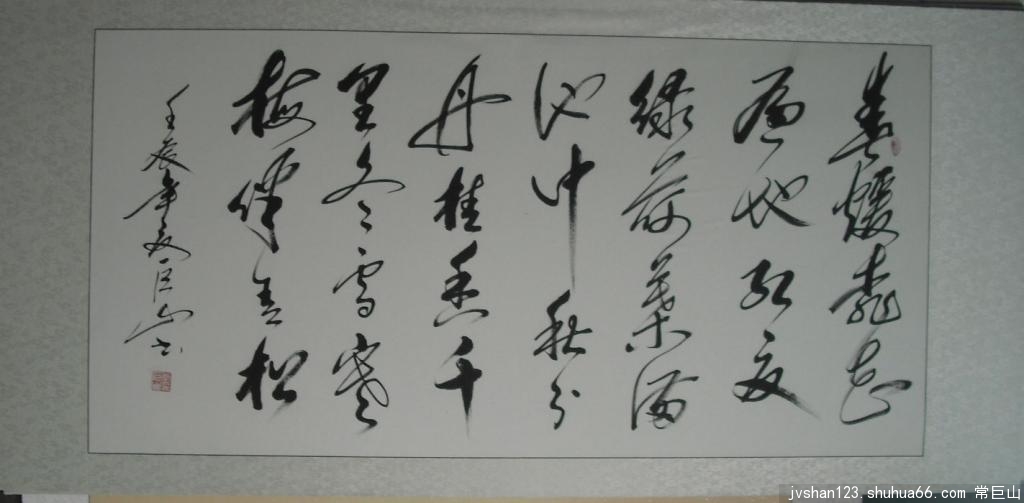 春暖
遍地红夏
绿荷葉满
池中秋分
丹桂香千
里冬雪寒
梅伴青松
壬辰年夏巨山书
jvshan123.shuhua66.com 常巨山